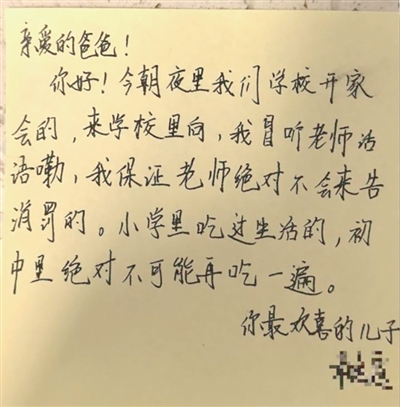 亲爱的爸爸！
你好！今朝夜里我们学校开家
会的，来学校里向，我冒听老师话
语嘞，我保证老师绝对不会来告
消罚的。小学里吃过生活的，初
中里绝对不可能再吃一遍。
你最欢喜的儿子